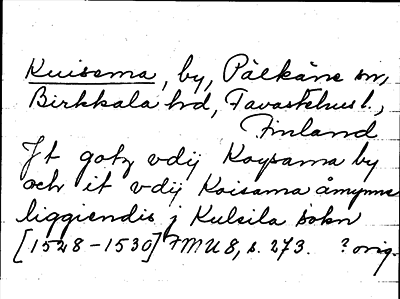 Kuisema, by, Pälkäne sn,
Birkkala hd, Tavastehus l.,
Finland
Jt gotz vdij Koysama by
och it vdij Koisama åmynne
liggiendis j Kulsila sokn
[1528-1530] FMU 8, s. 273. ? orig.